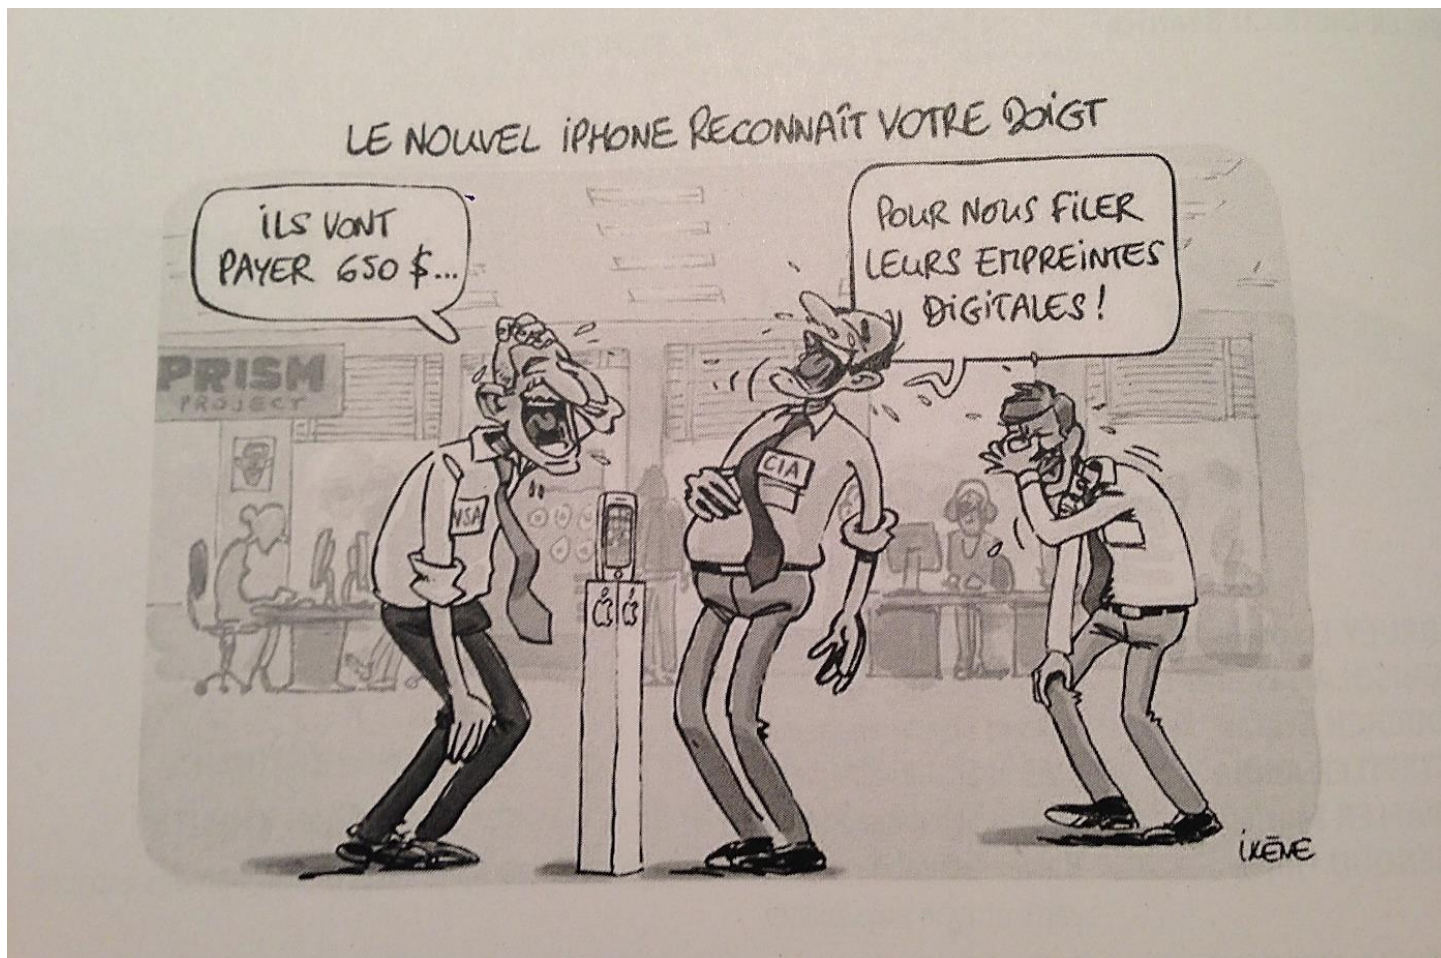 LE NOUVEL iPHONE RECONNAÎT VOTRE DOIGT
iLS VONT
PAYER 650 $...
POUR NOUS FiLER
LEURS EMPREINTES
DiGiTALES !
PRISM
PROJECT
NSA
CIA
iKĒNE